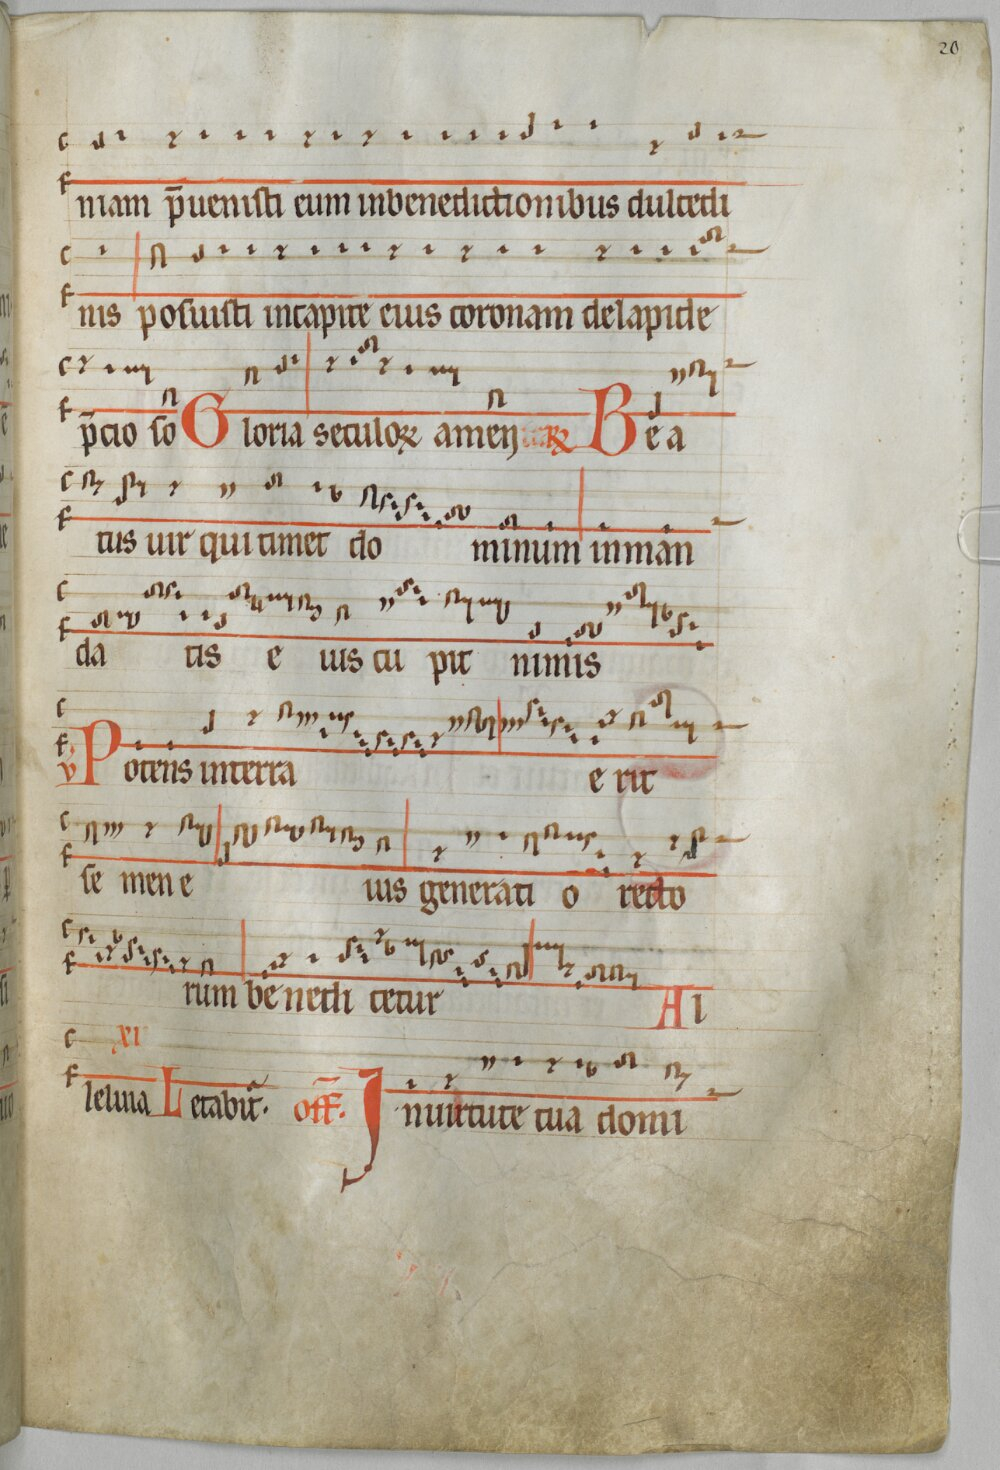 20
niam p̄uenisti eum inbenedictionibus dulcedi
nis posuisti incapite eius coronam delapide
p̄cio so Gloria seculoꝝ amen Bea
tus uir qui timet do minum inman
da tis e ius cu pit nimis
v Potens interra e rit
se men e ius generati o recto
rum be nedi cetur Al
xi
leluia Letabit̃. off̄. Inuirtute tua domi